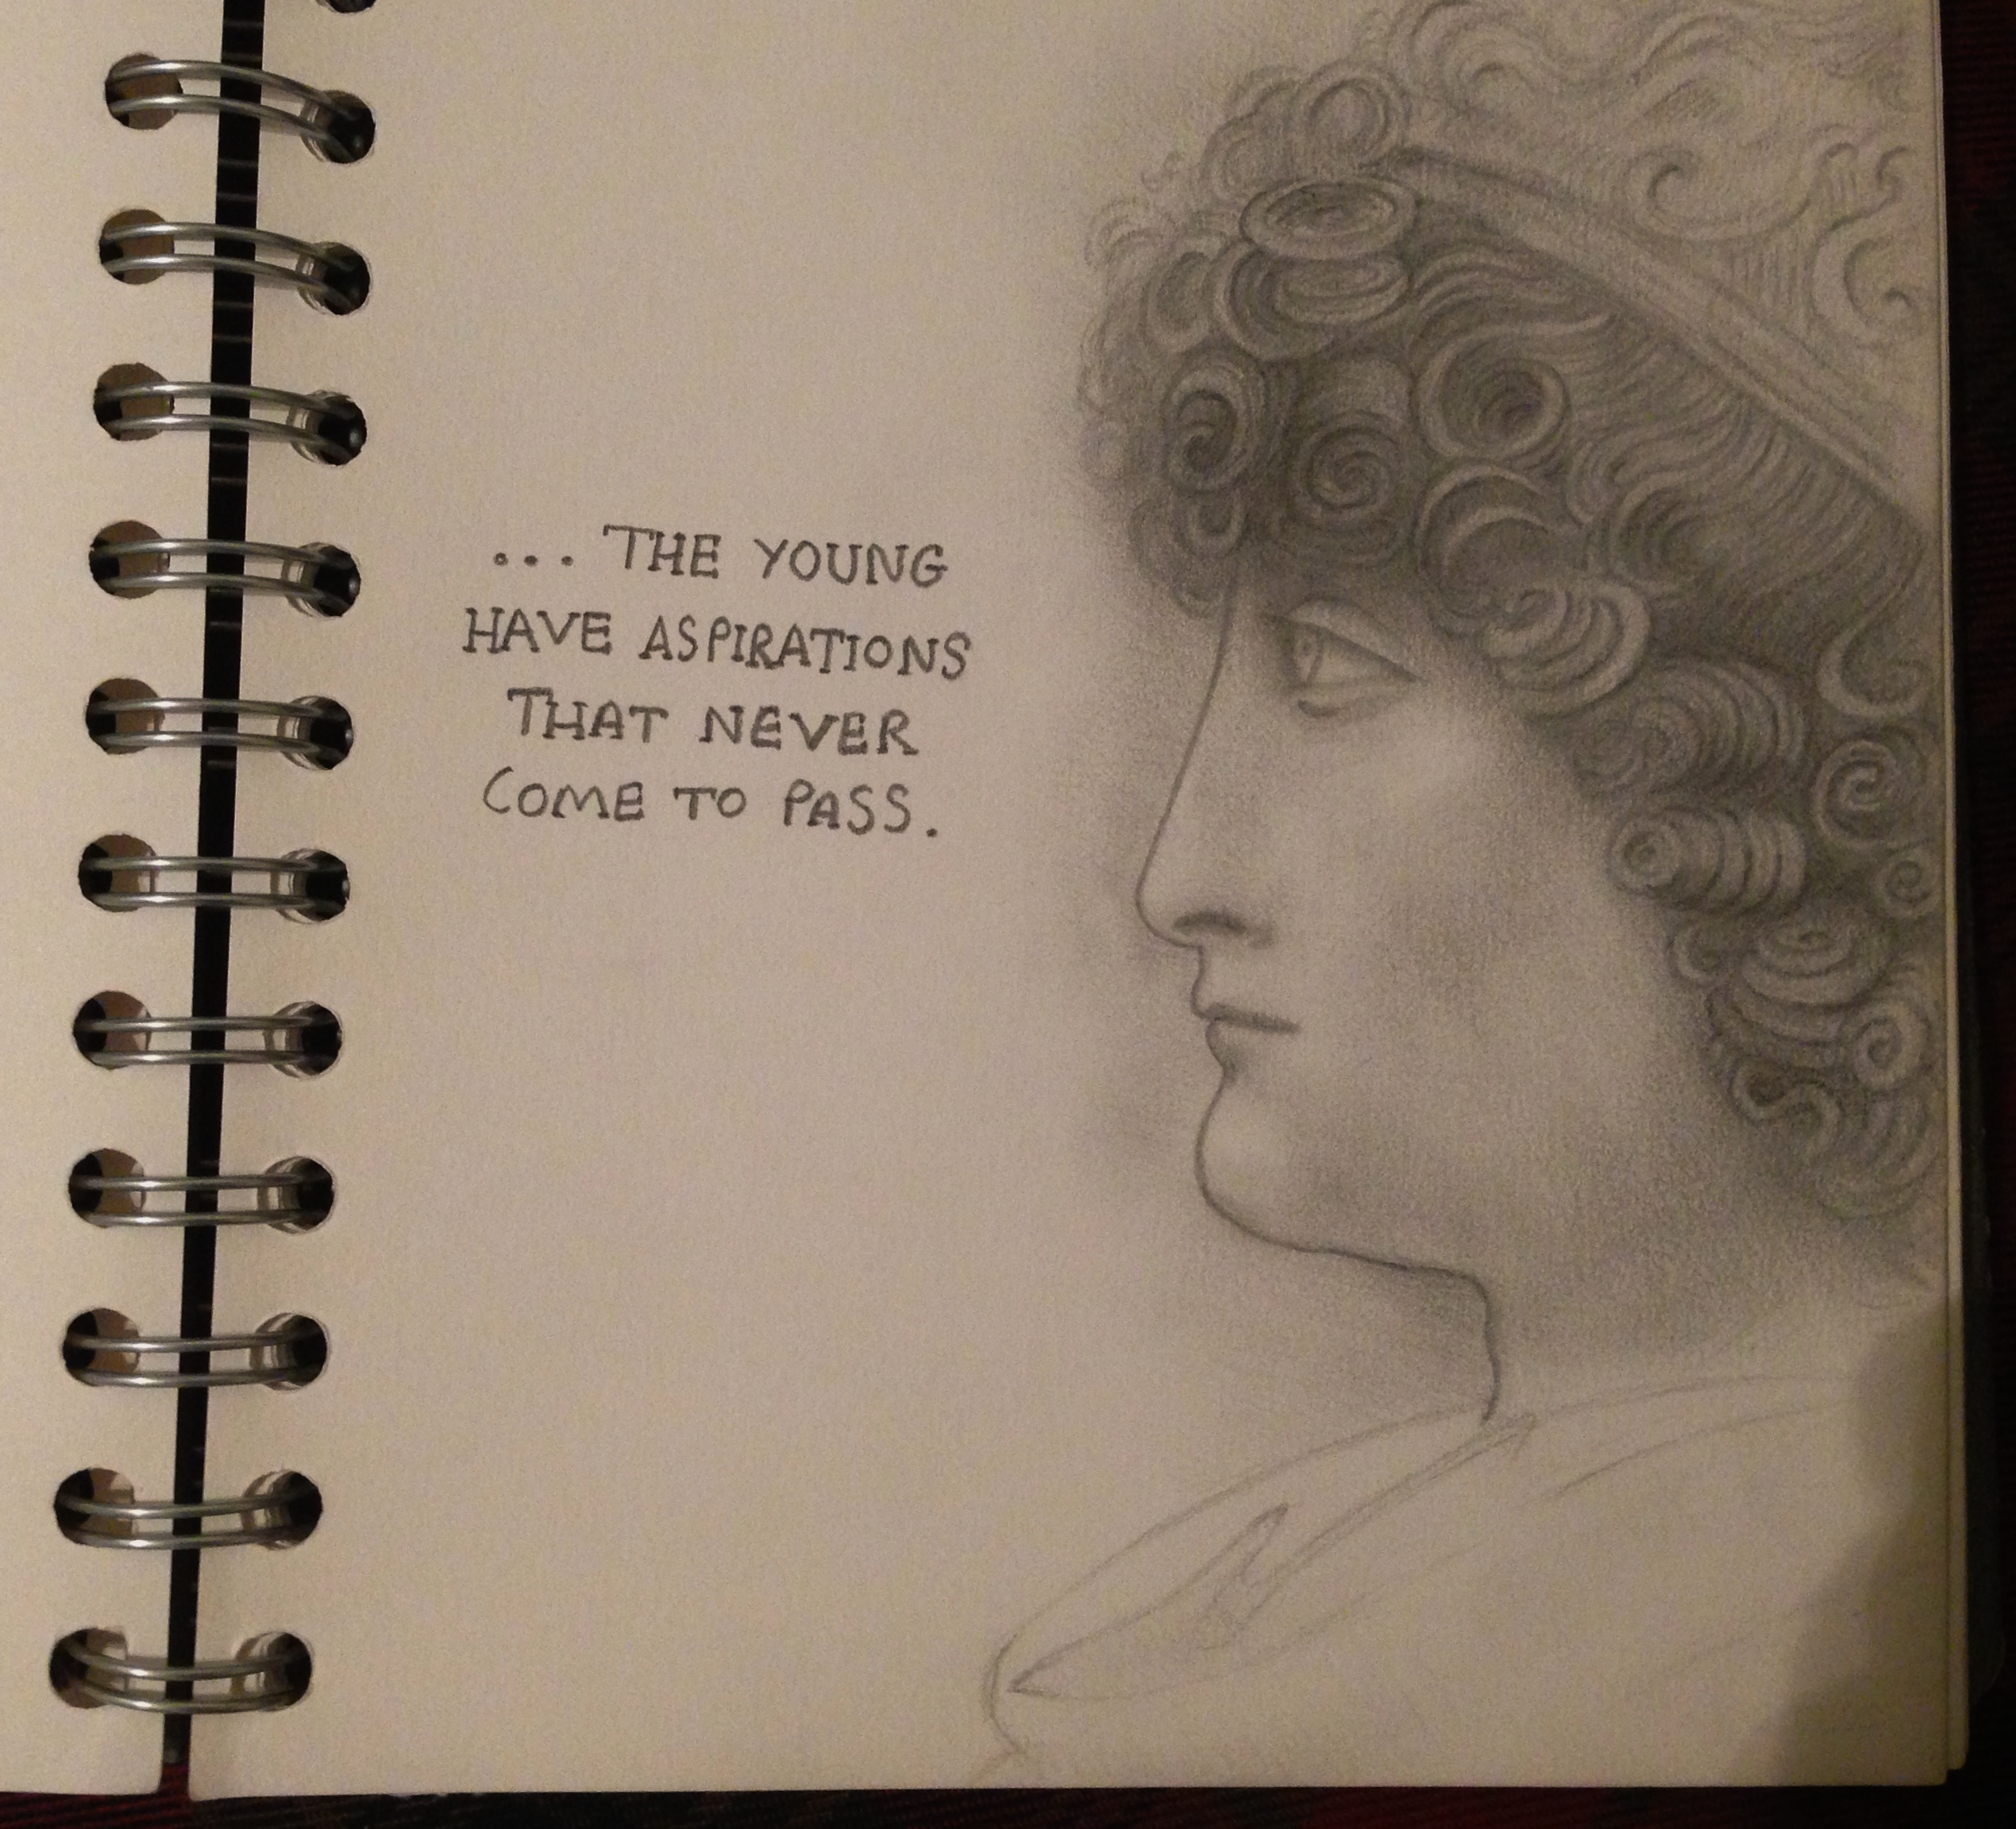 ... THE YOUNG
HAVE ASPIRATIONS
THAT NEVER
COME TO PASS.